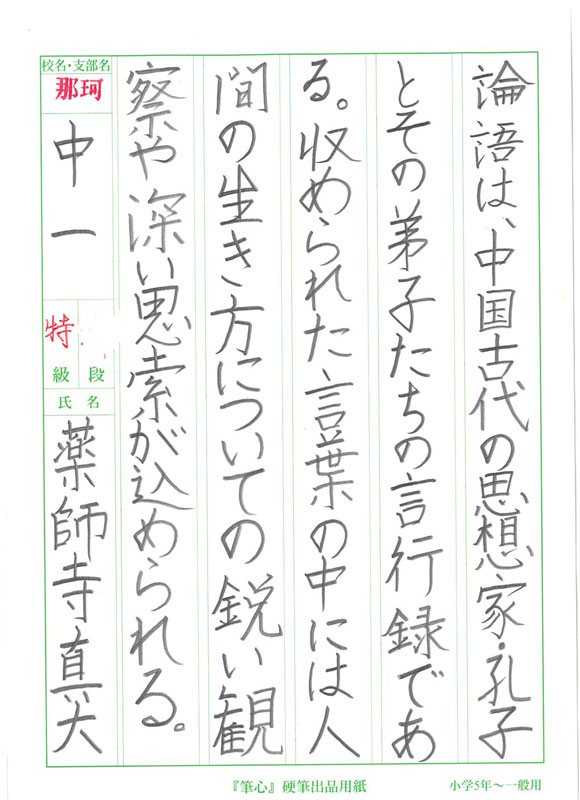 論語は、中国古代の思想家・孔子
とその弟子たちの言行録であ
る。収められた言葉の中には人
間の生き方についての鋭い観
察や深い思索が込められる。
校名・支部名
那珂
中一
特
級 段
氏名
薬師寺真
『筆心』硬筆出品用紙
小学5年～一般用